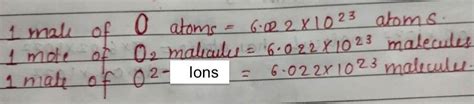 1 male of O atoms = 6.022 X 10²³ atoms.
1 mole of O₂ malicules = 6.022 X 10²³ molecules
1 mate of O²⁻ Ions = 6.022 X 10²³ malecules.